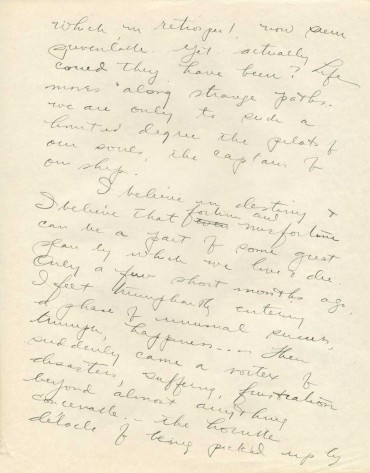 which in retrospect. now seem
juvenile. Yet actually
could they have been? Life
moves along strange paths.
we are only to such a
limited degree the pilots of
our souls, the captains of
our ship.
I believe in destiny &
I believe that fortune and misfortune
can be a part of some great
plan by which we live & die.
Only a few short months ago,
I felt triumphantly entering
a phase of unusual success,
triumph, happiness.... Then
suddenly came a vortex of
disasters, suffering, frustration
beyond almost anything
conceivable.. the horrible
debacle of being picked up by